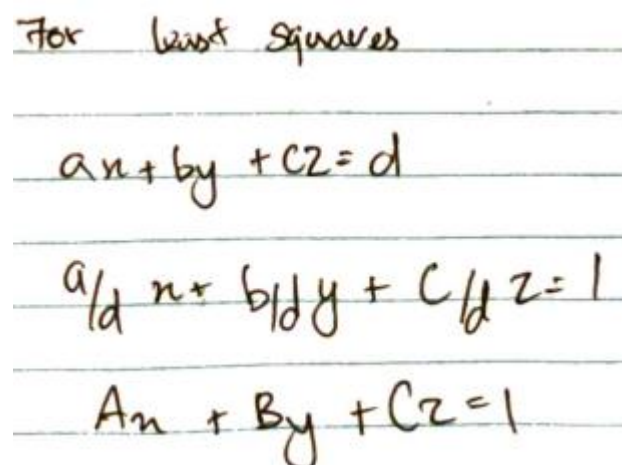 For least squares
ax + by + cz = d
a/d x + b/d y + c/d z = 1
Ax + By + Cz = 1